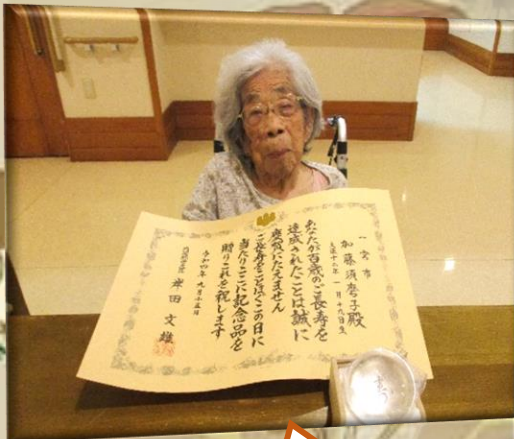 一宮市
加藤須磨子殿
大正十二年一月十九日生
あなたが百歳のご長寿を
達成されたことは誠に
慶賀にたえません
ご長寿をことほぐこの日に
当たりここに記念品を
贈りこれを祝します
令和四年九月十五日
内閣総理大臣 岸田文雄
寿